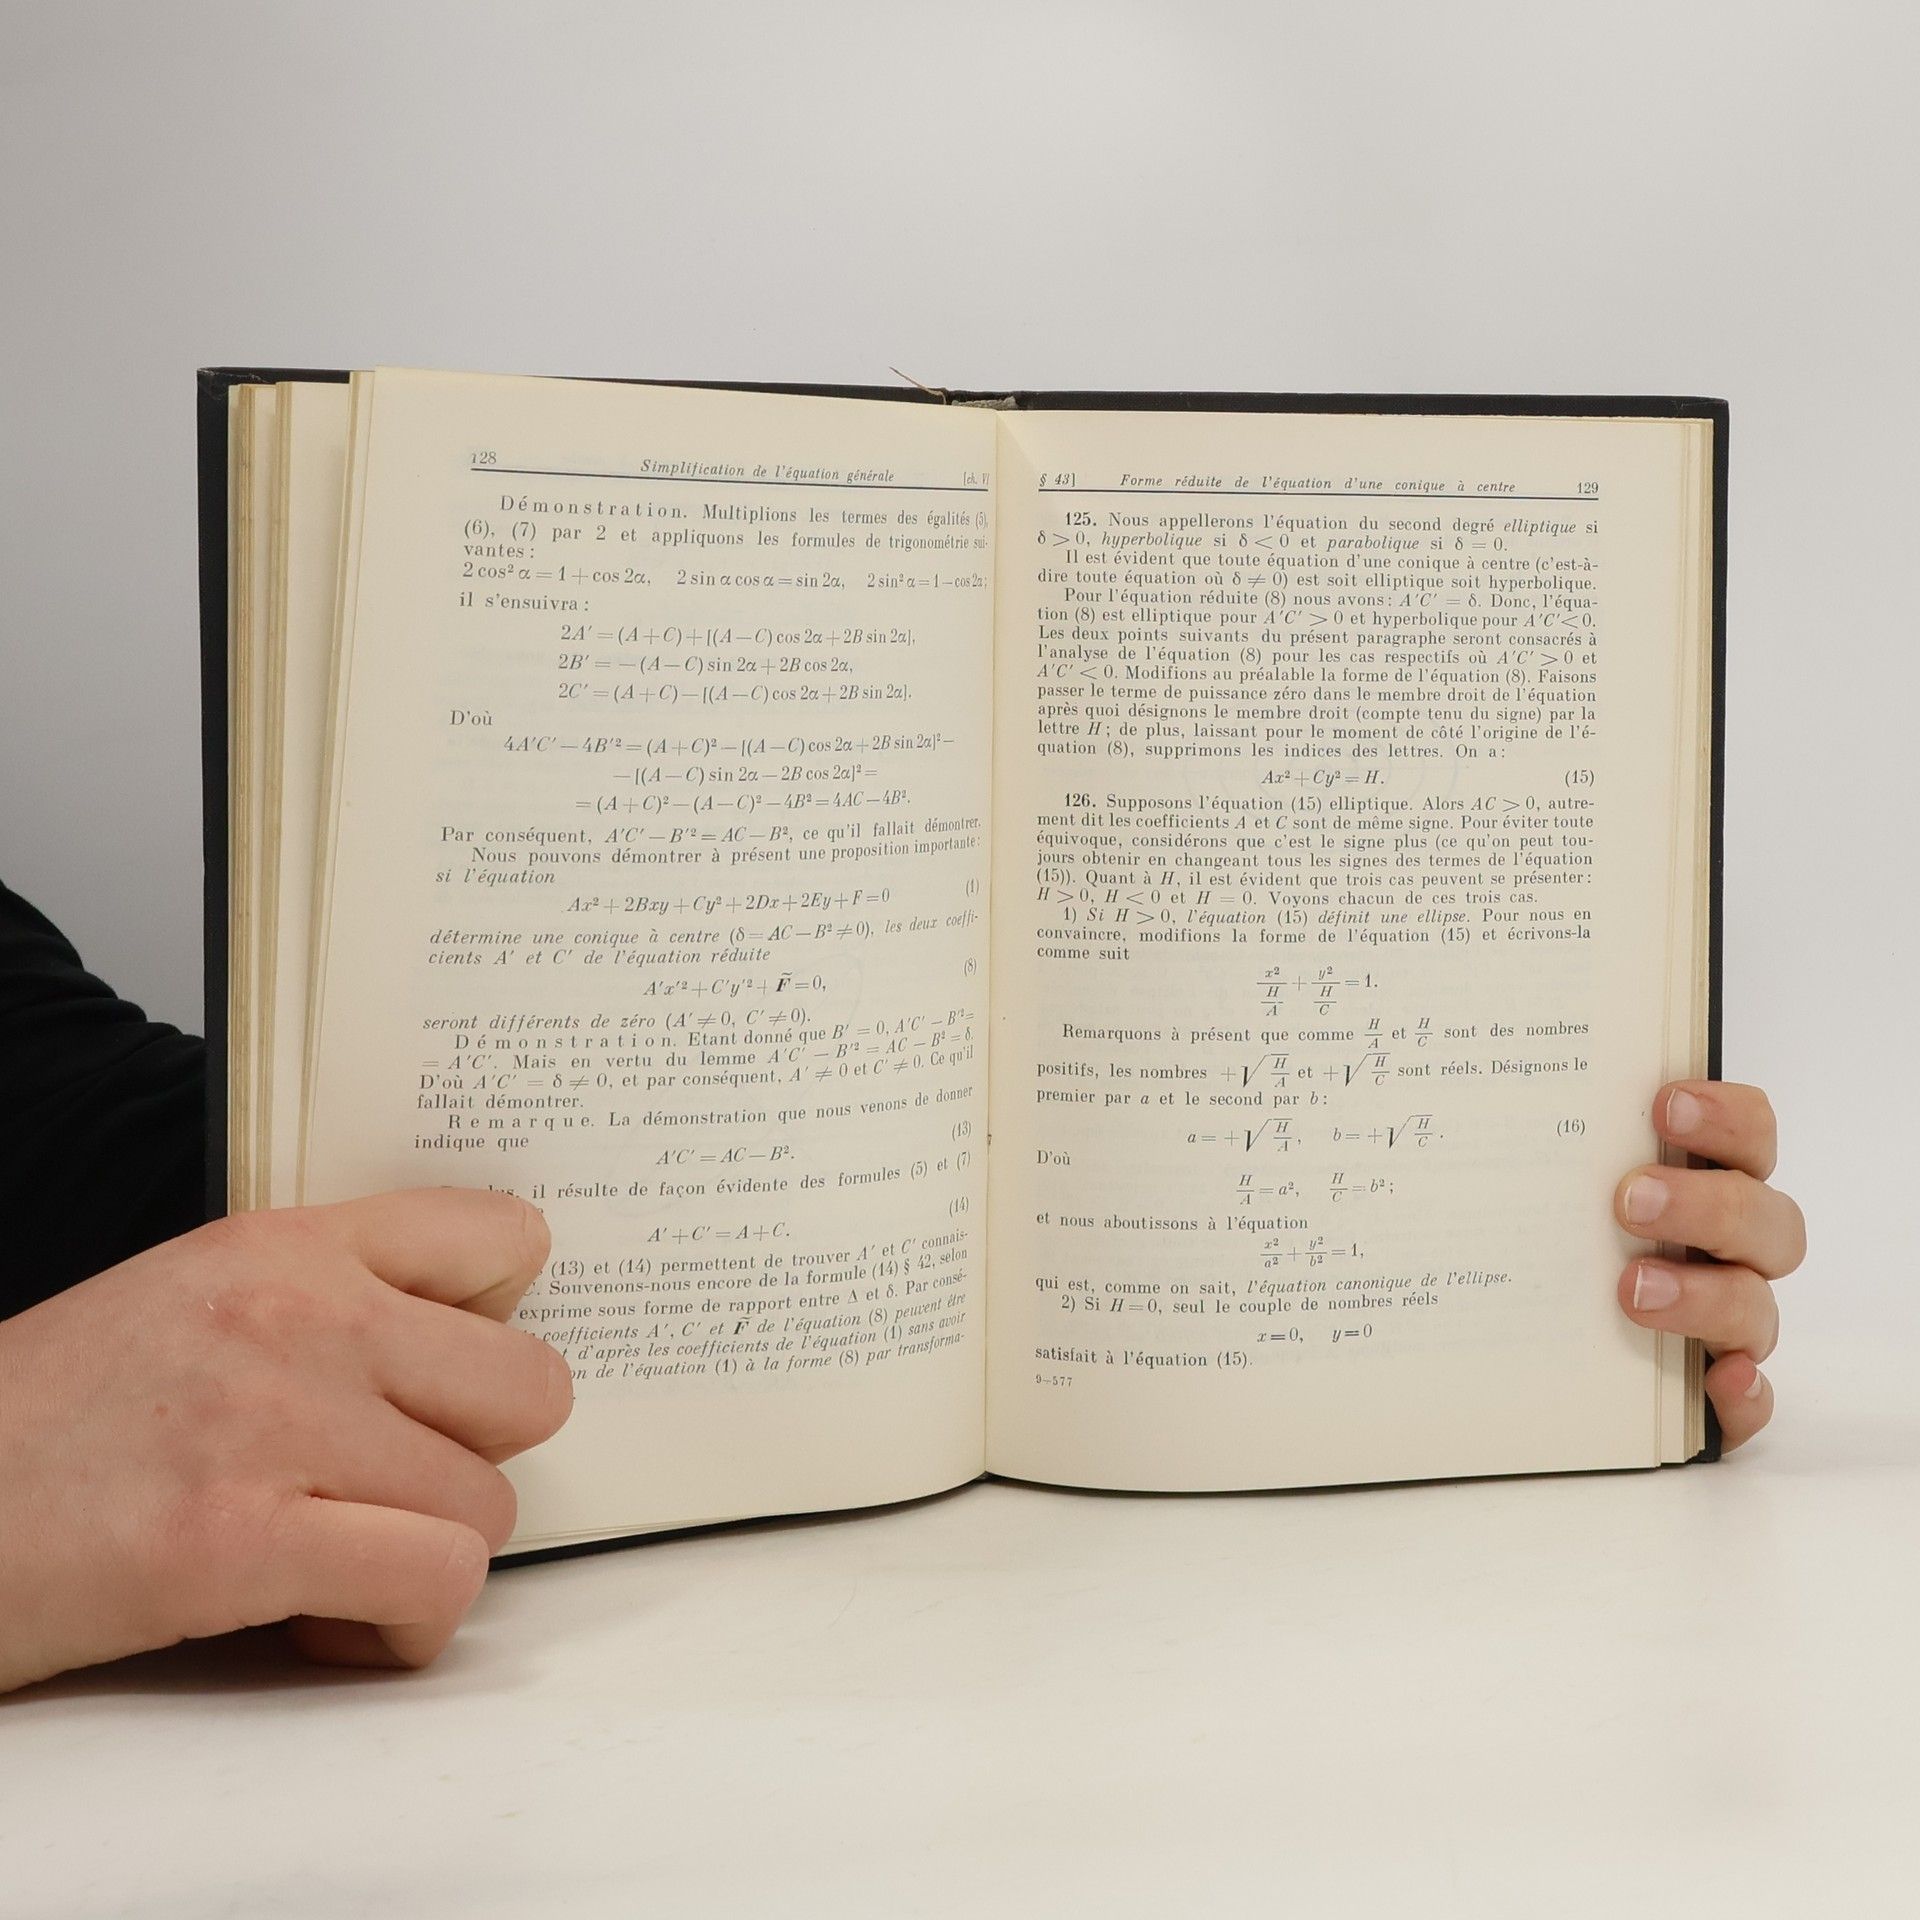 128 Simplification de l'équation générale [ch. V
Démonstration. Multiplions les termes des égalités (5),
(6), (7) par 2 et appliquons les formules de trigonométrie sui-
vantes :
2 cos² α = 1 + cos 2α, 2 sin α cos α = sin 2α, 2 sin² α = 1 — cos 2α;
il s'ensuivra :
2A′ = (A + C) + [(A — C) cos 2α + 2B sin 2α],
2B′ = — (A — C) sin 2α + 2B cos 2α,
2C′ = (A + C) — [(A — C) cos 2α + 2B sin 2α].
D'où
4A′C′ — 4B′² = (A + C)² — [(A — C) cos 2α + 2B sin 2α]² —
— [(A — C) sin 2α — 2B cos 2α]² =
= (A + C)² — (A — C)² — 4B² = 4AC — 4B².
Par conséquent, A′C′ — B′² = AC — B², ce qu'il fallait démontrer.
Nous pouvons démontrer à présent une proposition importante:
si l'équation
Ax² + 2Bxy + Cy² + 2Dx + 2Ey + F = 0 (1)
détermine une conique à centre (δ = AC — B² ≠ 0), les deux coeffi-
cients A′ et C′ de l'équation réduite
A′x′² + C′y′² + F̃ = 0, (8)
seront différents de zéro (A′ ≠ 0, C′ ≠ 0).
Démonstration. Etant donné que B′ = 0, A′C′ — B′² =
= A′C′. Mais en vertu du lemme A′C′ — B′² = AC — B² = δ.
D'où A′C′ = δ ≠ 0, et par conséquent, A′ ≠ 0 et C′ ≠ 0. Ce qu'il
fallait démontrer.
Remarque. La démonstration que nous venons de donner
indique que
A′C′ = AC — B². (13)
il résulte de façon évidente des formules (5) et (7)
A′ + C′ = A + C. (14)
(13) et (14) permettent de trouver A′ et C′ connais-
C. Souvenons-nous encore de la formule (14) § 42, selon
exprime sous forme de rapport entre Δ et δ. Par consé-
coefficients A′, C′ et F̃ de l'équation (8) peuvent être
d'après les coefficients de l'équation (1) sans avoir
de l'équation (1) à la forme (8) par transforma-
§ 43] Forme réduite de l'équation d'une conique à centre 129
125. Nous appellerons l'équation du second degré elliptique si
δ > 0, hyperbolique si δ < 0 et parabolique si δ = 0.
Il est évident que toute équation d'une conique à centre (c'est-à-
dire toute équation où δ ≠ 0) est soit elliptique soit hyperbolique.
Pour l'équation réduite (8) nous avons: A′C′ = δ. Donc, l'équa-
tion (8) est elliptique pour A′C′ > 0 et hyperbolique pour A′C′ < 0.
Les deux points suivants du présent paragraphe seront consacrés à
l'analyse de l'équation (8) pour les cas respectifs où A′C′ > 0 et
A′C′ < 0. Modifions au préalable la forme de l'équation (8). Faisons
passer le terme de puissance zéro dans le membre droit de l'équation
après quoi désignons le membre droit (compte tenu du signe) par la
lettre H; de plus, laissant pour le moment de côté l'origine de l'é-
quation (8), supprimons les indices des lettres. On a:
Ax² + Cy² = H. (15)
126. Supposons l'équation (15) elliptique. Alors AC > 0, autre-
ment dit les coefficients A et C sont de même signe. Pour éviter toute
équivoque, considérons que c'est le signe plus (ce qu'on peut tou-
jours obtenir en changeant tous les signes des termes de l'équation
(15)). Quant à H, il est évident que trois cas peuvent se présenter:
H > 0, H < 0 et H = 0. Voyons chacun de ces trois cas.
1) Si H > 0, l'équation (15) définit une ellipse. Pour nous en
convaincre, modifions la forme de l'équation (15) et écrivons-la
comme suit
x²/(H/A) + y²/(H/C) = 1.
Remarquons à présent que comme H/A et H/C sont des nombres
positifs, les nombres +√(H/A) et +√(H/C) sont réels. Désignons le
premier par a et le second par b:
a = +√(H/A), b = +√(H/C). (16)
D'où
H/A = a², H/C = b²;
et nous aboutissons à l'équation
x²/a² + y²/b² = 1,
qui est, comme on sait, l'équation canonique de l'ellipse.
2) Si H = 0, seul le couple de nombres réels
x = 0, y = 0
satisfait à l'équation (15).
9—577